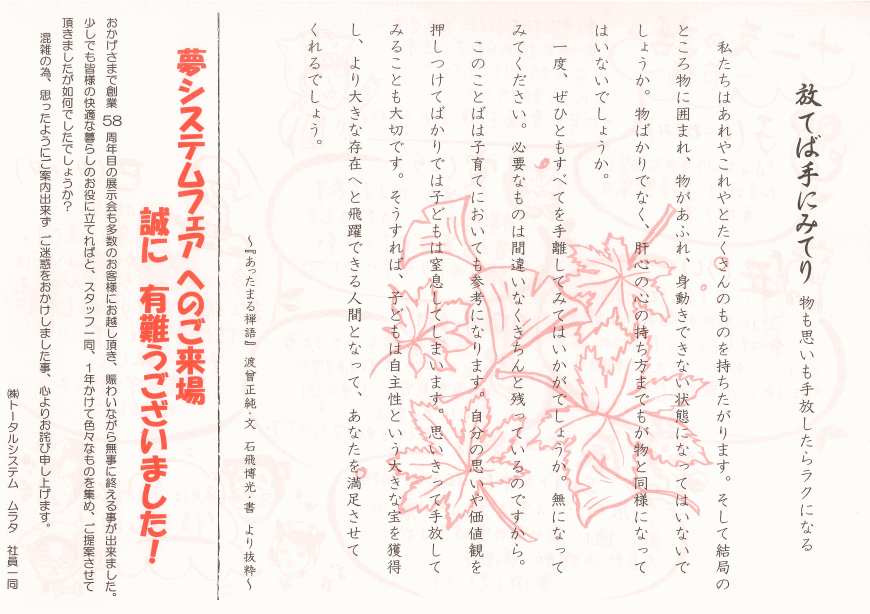 放てば手にみてり 物も思いも手放したらラクになる
私たちはあれやこれやとたくさんのものを持ちたがります。そして結局の
ところ物に囲まれ、物があふれ、身動きできない状態になってはいないで
しょうか。物ばかりでなく、肝心の心の持ち方までもが物と同様になって
はいないでしょうか。
一度、ぜひともすべてを手離してみてはいかがでしょうか。無になって
みてください。必要なものは間違いなくきちんと残っているのですから。
このことばは子育てにおいても参考になります。自分の思いや価値観を
押しつけてばかりでは子どもは窒息してしまいます。思いきって手放して
みることも大切です。そうすれば、子どもは自主性という大きな宝を獲得
し、より大きな存在へと飛躍できる人間となって、あなたを満足させて
くれるでしょう。
～『あったまる禅語』 渡曾正純・文 石飛博光・書 より抜粋～
夢システムフェア へのご来場
誠に 有難うございました！
おかげさまで創業 58 周年目の展示会も多数のお客様にお越し頂き、賑わいながら無事に終える事が出来ました。
少しでも皆様の快適な暮らしのお役に立てればと、スタッフ一同、1年かけて色々なものを集め、ご提案させて
頂きましたが如何でしたでしょうか？
混雑の為、思ったようにご案内出来ず ご迷惑をおかけしました事、心よりお詫び申し上げます。
㈱トータルシステム ムラタ 社員一同